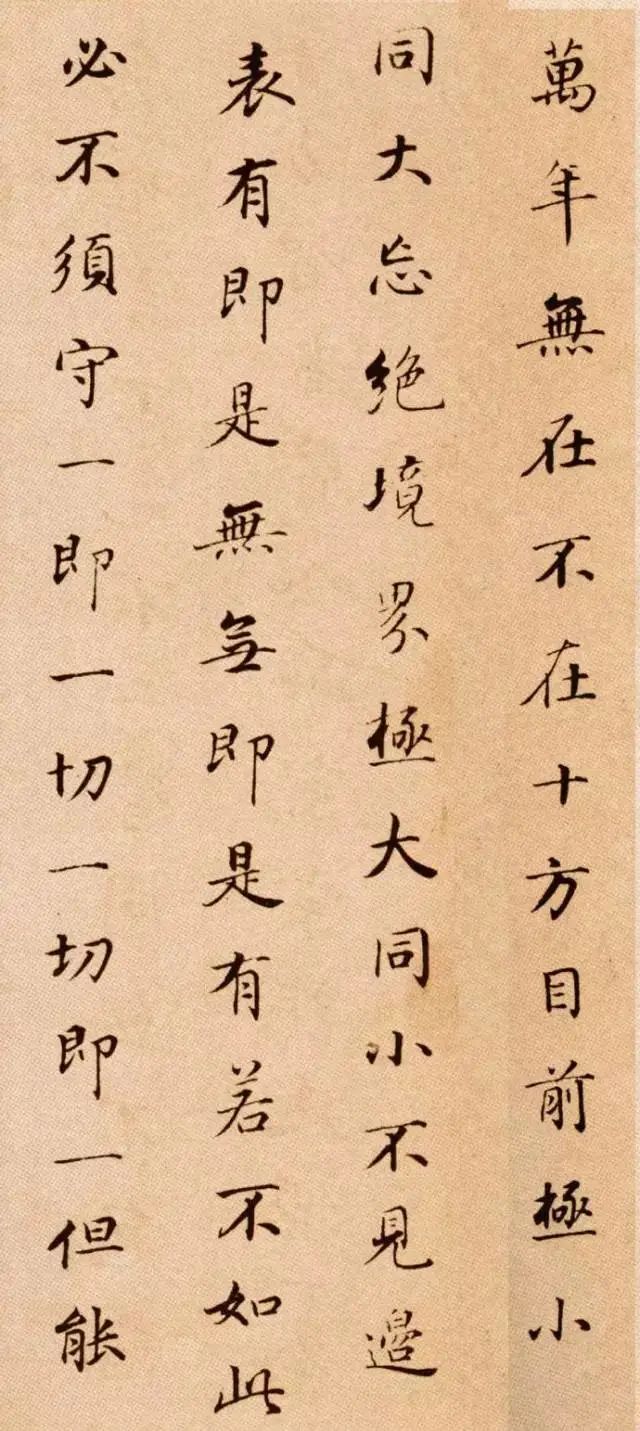 萬年無在不在十方目前極小
同大忘絶境界極大同小不見邊
表有即是無無即是有若不如此
必不須守一即一切一切即一但能